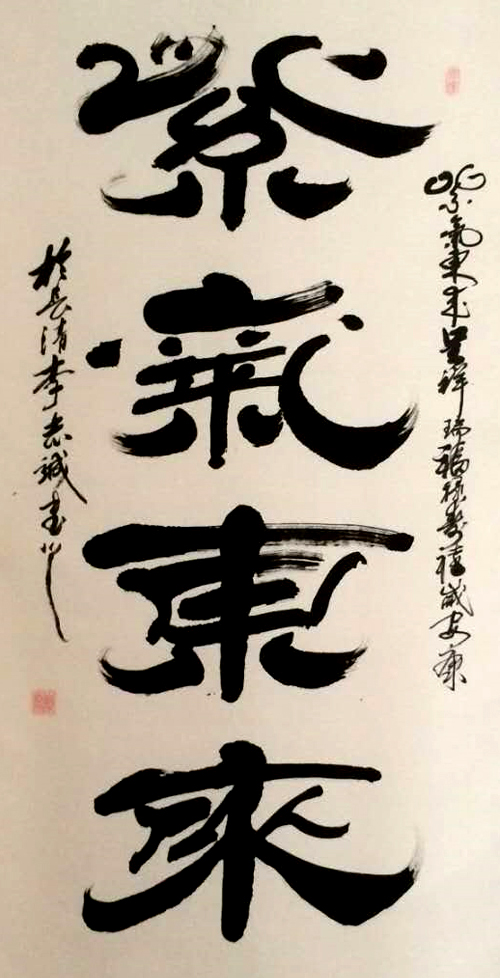 紫氣東来呈祥瑞福禄寿禧咸安康
紫氣東來
於長清李志誠書